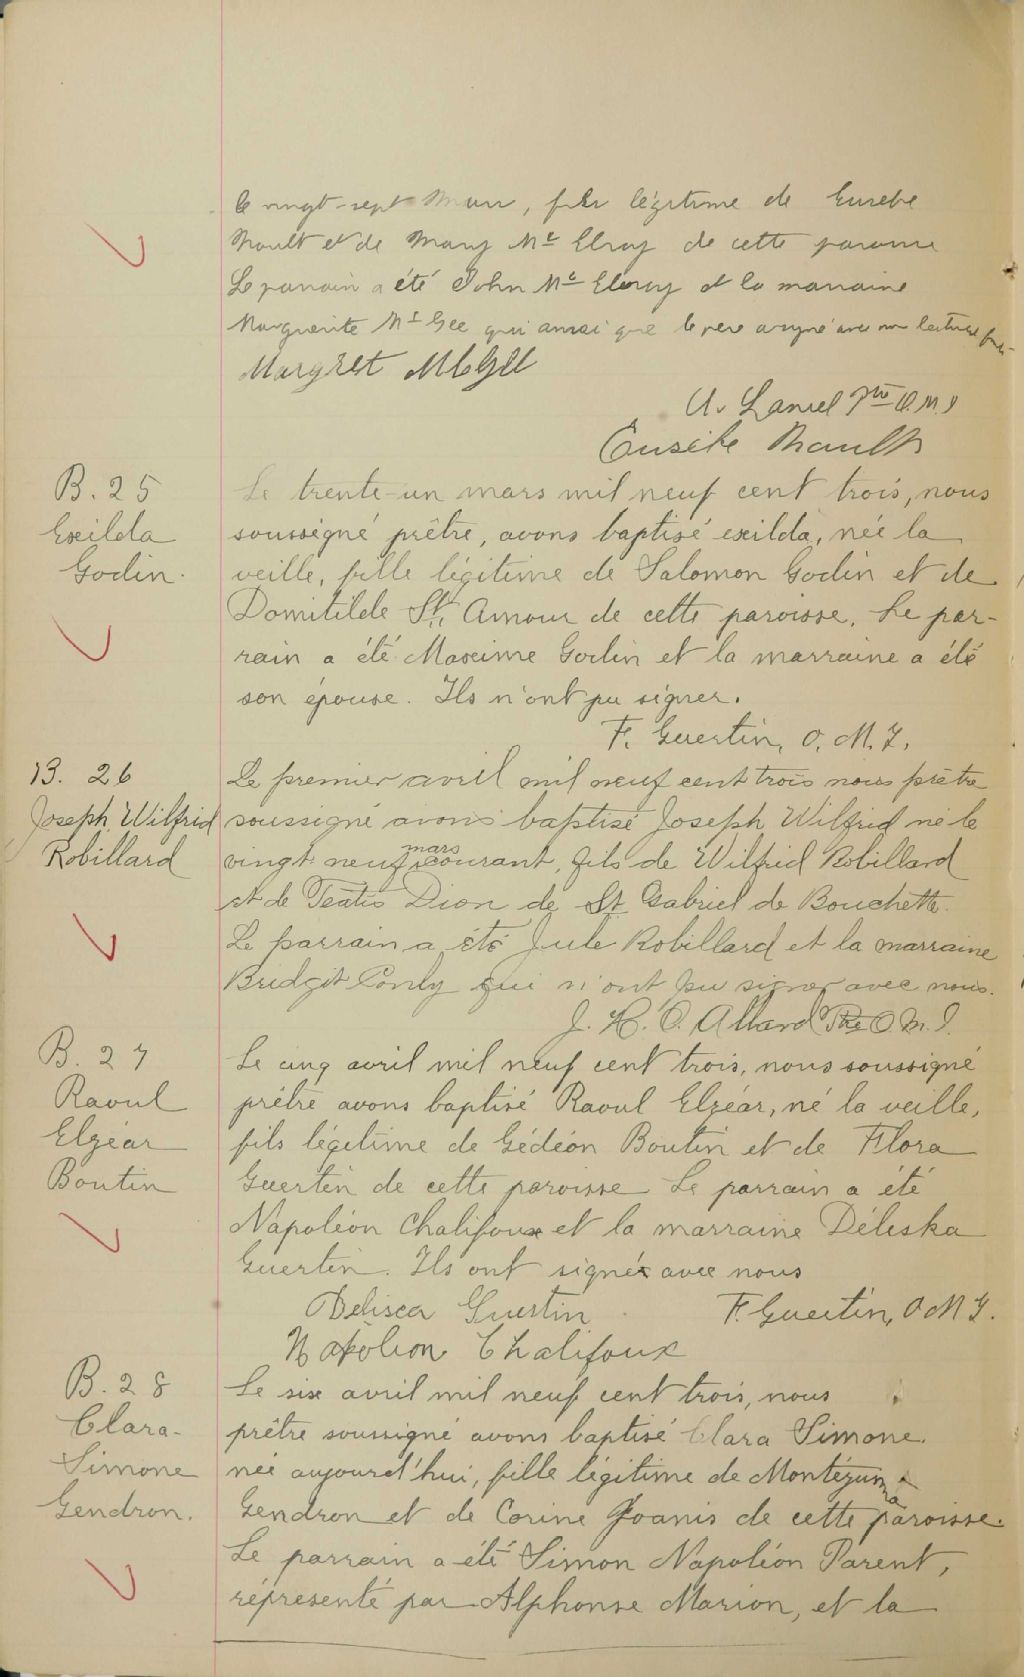 le vingt-sept Mars, fils légitime de Eusebe
Nault et de Mary Mc Elroy de cette paroisse
Le parrain a été John Mc Elroy et la marraine
Marguerite Mc Gee qui ainsi que le pere a signé avec nous lecture faite
Margret McGee
U. Laniel Ptre O.M.I
Eusèbe Nault
B. 25
Exilda
Godin.
Le trente-un mars mil neuf cent trois, nous
soussigné prêtre, avons baptisé exilda, née la
veille, fille légitime de Salomon Godin et de
Domitilde St. Amour de cette paroisse. Le par-
rain a été Maxime Godin et la marraine a été
son épouse. Ils n'ont pu signer.
F. Guertin, O. M. I.
B. 26
Joseph Wilfrid
Robillard
Le premier avril mil neuf cent trois nous prêtre
soussigné avons baptisé Joseph Wilfrid né le
vingt neuf mars courant, fils de Wilfrid Robillard
et de Dion de St Gabriel de Bouchette.
Le parrain a été Jule Robillard et la marraine
Bridgit Conly qui n'ont pu signer avec nous.
J. H. O. Allard Ptre O. M. I.
B. 27
Raoul
Elzéar
Boutin
Le cinq avril mil neuf cent trois, nous soussigné
prêtre avons baptisé Raoul Elzéar, né la veille,
fils légitime de Gédéon Boutin et de Flora
Guertin de cette paroisse Le parrain a été
Napoléon Chalifoux et la marraine Déleska
Guertin. Ils ont signé avec nous
Delisca Guertin F. Guertin, O M I.
Napoleon Chalifoux
B. 28
Clara-
Simone
Gendron.
Le six avril mil neuf cent trois, nous
prêtre soussigné avons baptisé Clara Simone.
née aujourd'hui, fille légitime de Montézuma
Gendron et de Corine Joanis de cette paroisse.
Le parrain a été Simon Napoléon Parent,
représenté par Alphonse Marion, et la